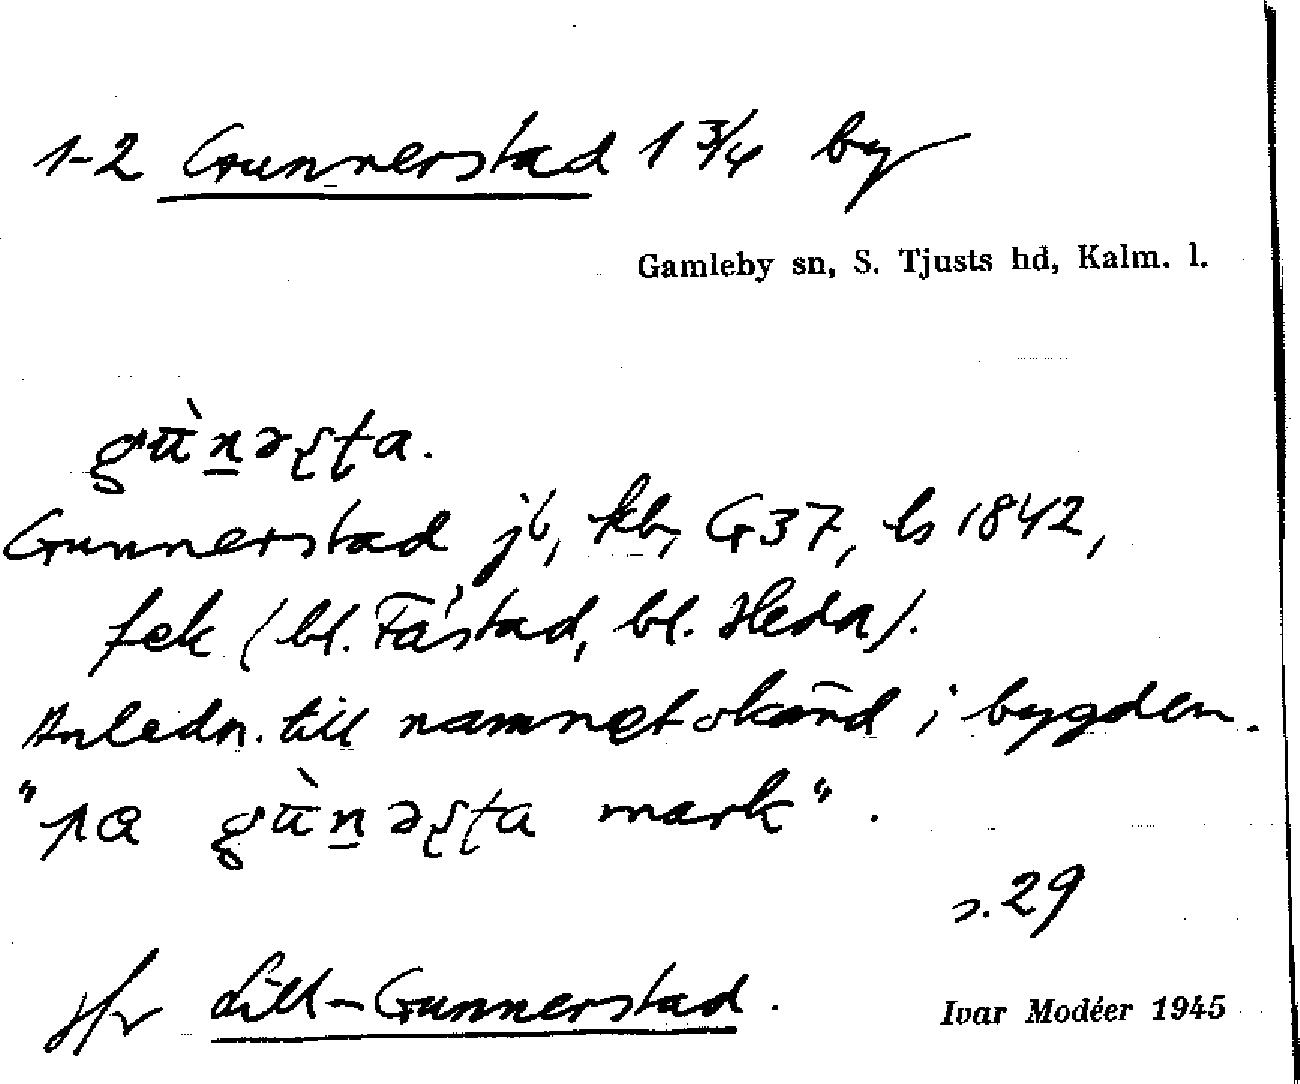 1-2 Gunnerstad 1 3/4 by
Gamleby sn, S. Tjusts hd, Kalm. l.
gùn̲əʂʈa.
Gunnerstad jb, kb, G37, ls 1842,
fek (bl. Fåstad, bl. Heda).
Anledn. till namnet okänd i bygden.
"pα gùn̲əʂʈa mark".
s. 29
Jfr Lill-Gunnerstad.
Ivar Modéer 1945